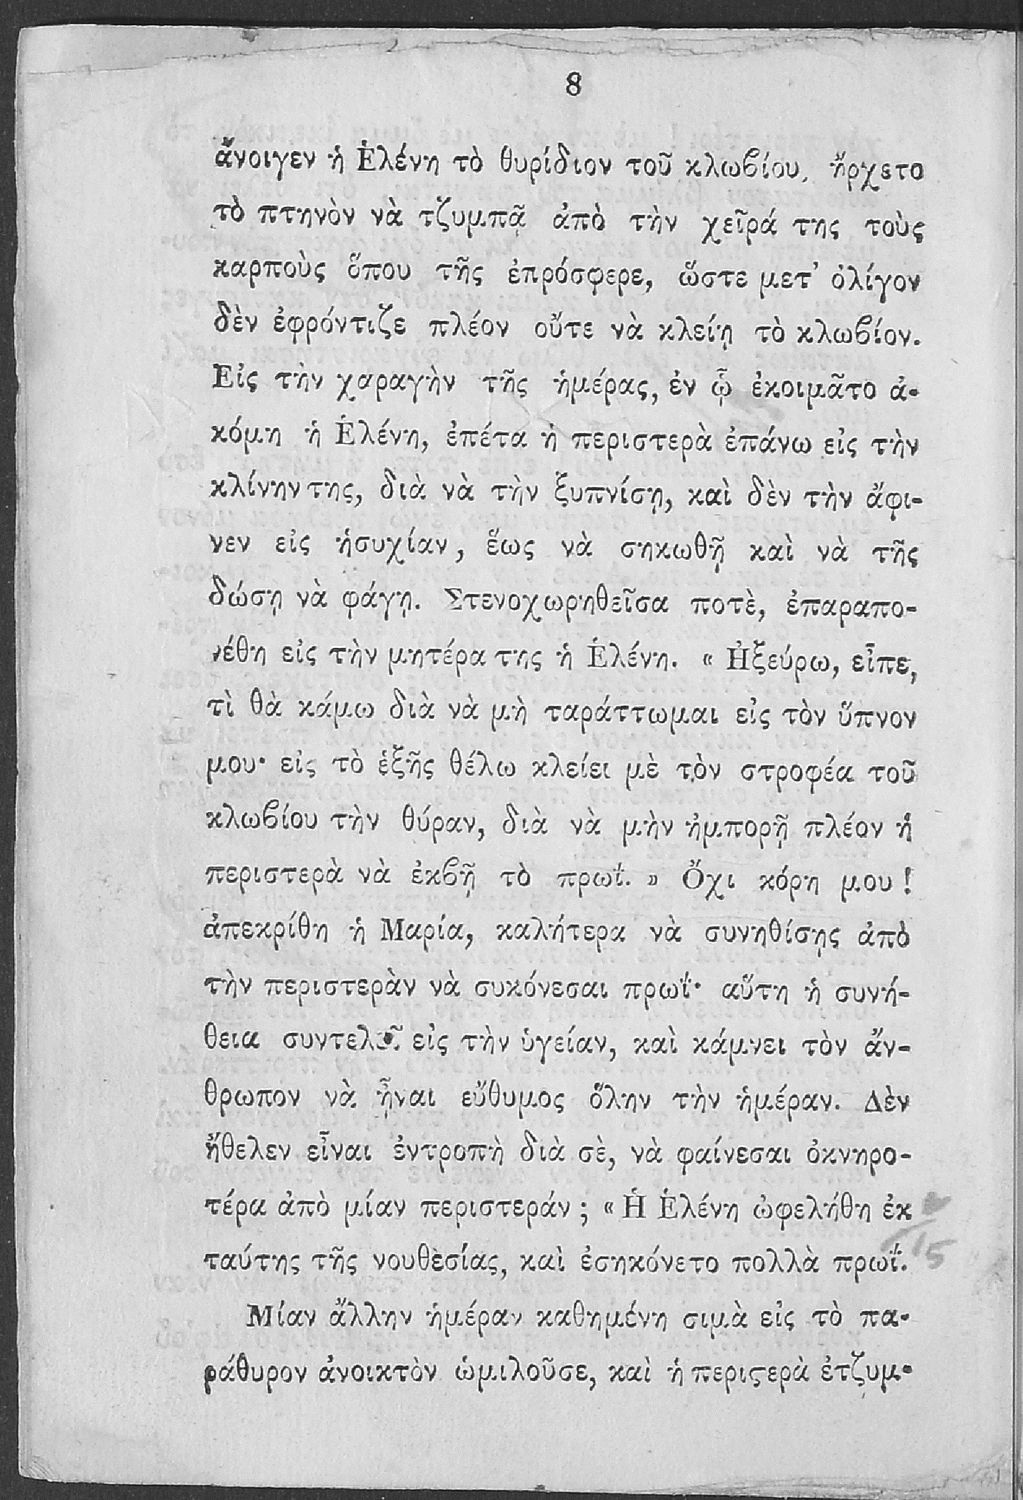 8
ἄνοιγεν ἡ Ἑλένη τὸ θυρίδιον τοῦ κλωβίου, ἤρχετο
τὸ πτηνὸν νὰ τζυμπᾷ ἀπὸ τὴν χεῖρά της τοὺς
καρποὺς ὅπου τῆς ἐπρόσφερε, ὥστε μετ' ὀλίγον
δὲν ἐφρόντιζε πλέον οὔτε νὰ κλείῃ τὸ κλωβίον.
Εἰς τὴν χαραγὴν τῆς ἡμέρας, ἐν ᾧ ἐκοιμᾶτο ἀ-
κόμη ἡ Ἑλένη, ἐπέτα ἡ περιστερὰ ἐπάνω εἰς τὴν
κλίνην της, διὰ νὰ τὴν ξυπνίσῃ, καὶ δὲν τὴν ἄφι-
νεν εἰς ἡσυχίαν, ἕως νὰ σηκωθῇ καὶ νὰ τῆς
δώσῃ νὰ φάγῃ. Στενοχωρηθεῖσα ποτὲ, ἐπαραπο-
νέθη εἰς τὴν μητέρα της ἡ Ἑλένη. « Ἠξεύρω, εἶπε,
τὶ θὰ κάμω διὰ νὰ μὴ ταράττωμαι εἰς τὸν ὕπνον
μου· εἰς τὸ ἑξῆς θέλω κλείει μὲ τὸν στροφέα τοῦ
κλωβίου τὴν θύραν, διὰ νὰ μὴν ἠμπορῇ πλέον ἡ
περιστερὰ νὰ ἐκβῇ τὸ πρωΐ. » Ὄχι κόρη μου !
ἀπεκρίθη ἡ Μαρία, καλήτερα νὰ συνηθίσῃς ἀπὸ
τὴν περιστερὰν νὰ συκόνεσαι πρωΐ· αὕτη ἡ συνή-
θεια συντελεῖ εἰς τὴν ὑγείαν, καὶ κάμνει τὸν ἄν-
θρωπον νὰ ᾖναι εὔθυμος ὅλην τὴν ἡμέραν. Δὲν
ἤθελεν εἶναι ἐντροπὴ διὰ σὲ, νὰ φαίνεσαι ὀκνηρο-
τέρα ἀπὸ μίαν περιστεράν ; « Ἡ Ἑλένη ὠφελήθη ἐκ
ταύτης τῆς νουθεσίας, καὶ ἐσηκόνετο πολλὰ πρωΐ.
15
Μίαν ἄλλην ἡμέραν καθημένη σιμὰ εἰς τὸ πα-
ράθυρον ἀνοικτὸν ὡμιλοῦσε, καὶ ἡ περιϛερὰ ἐτζυμ-